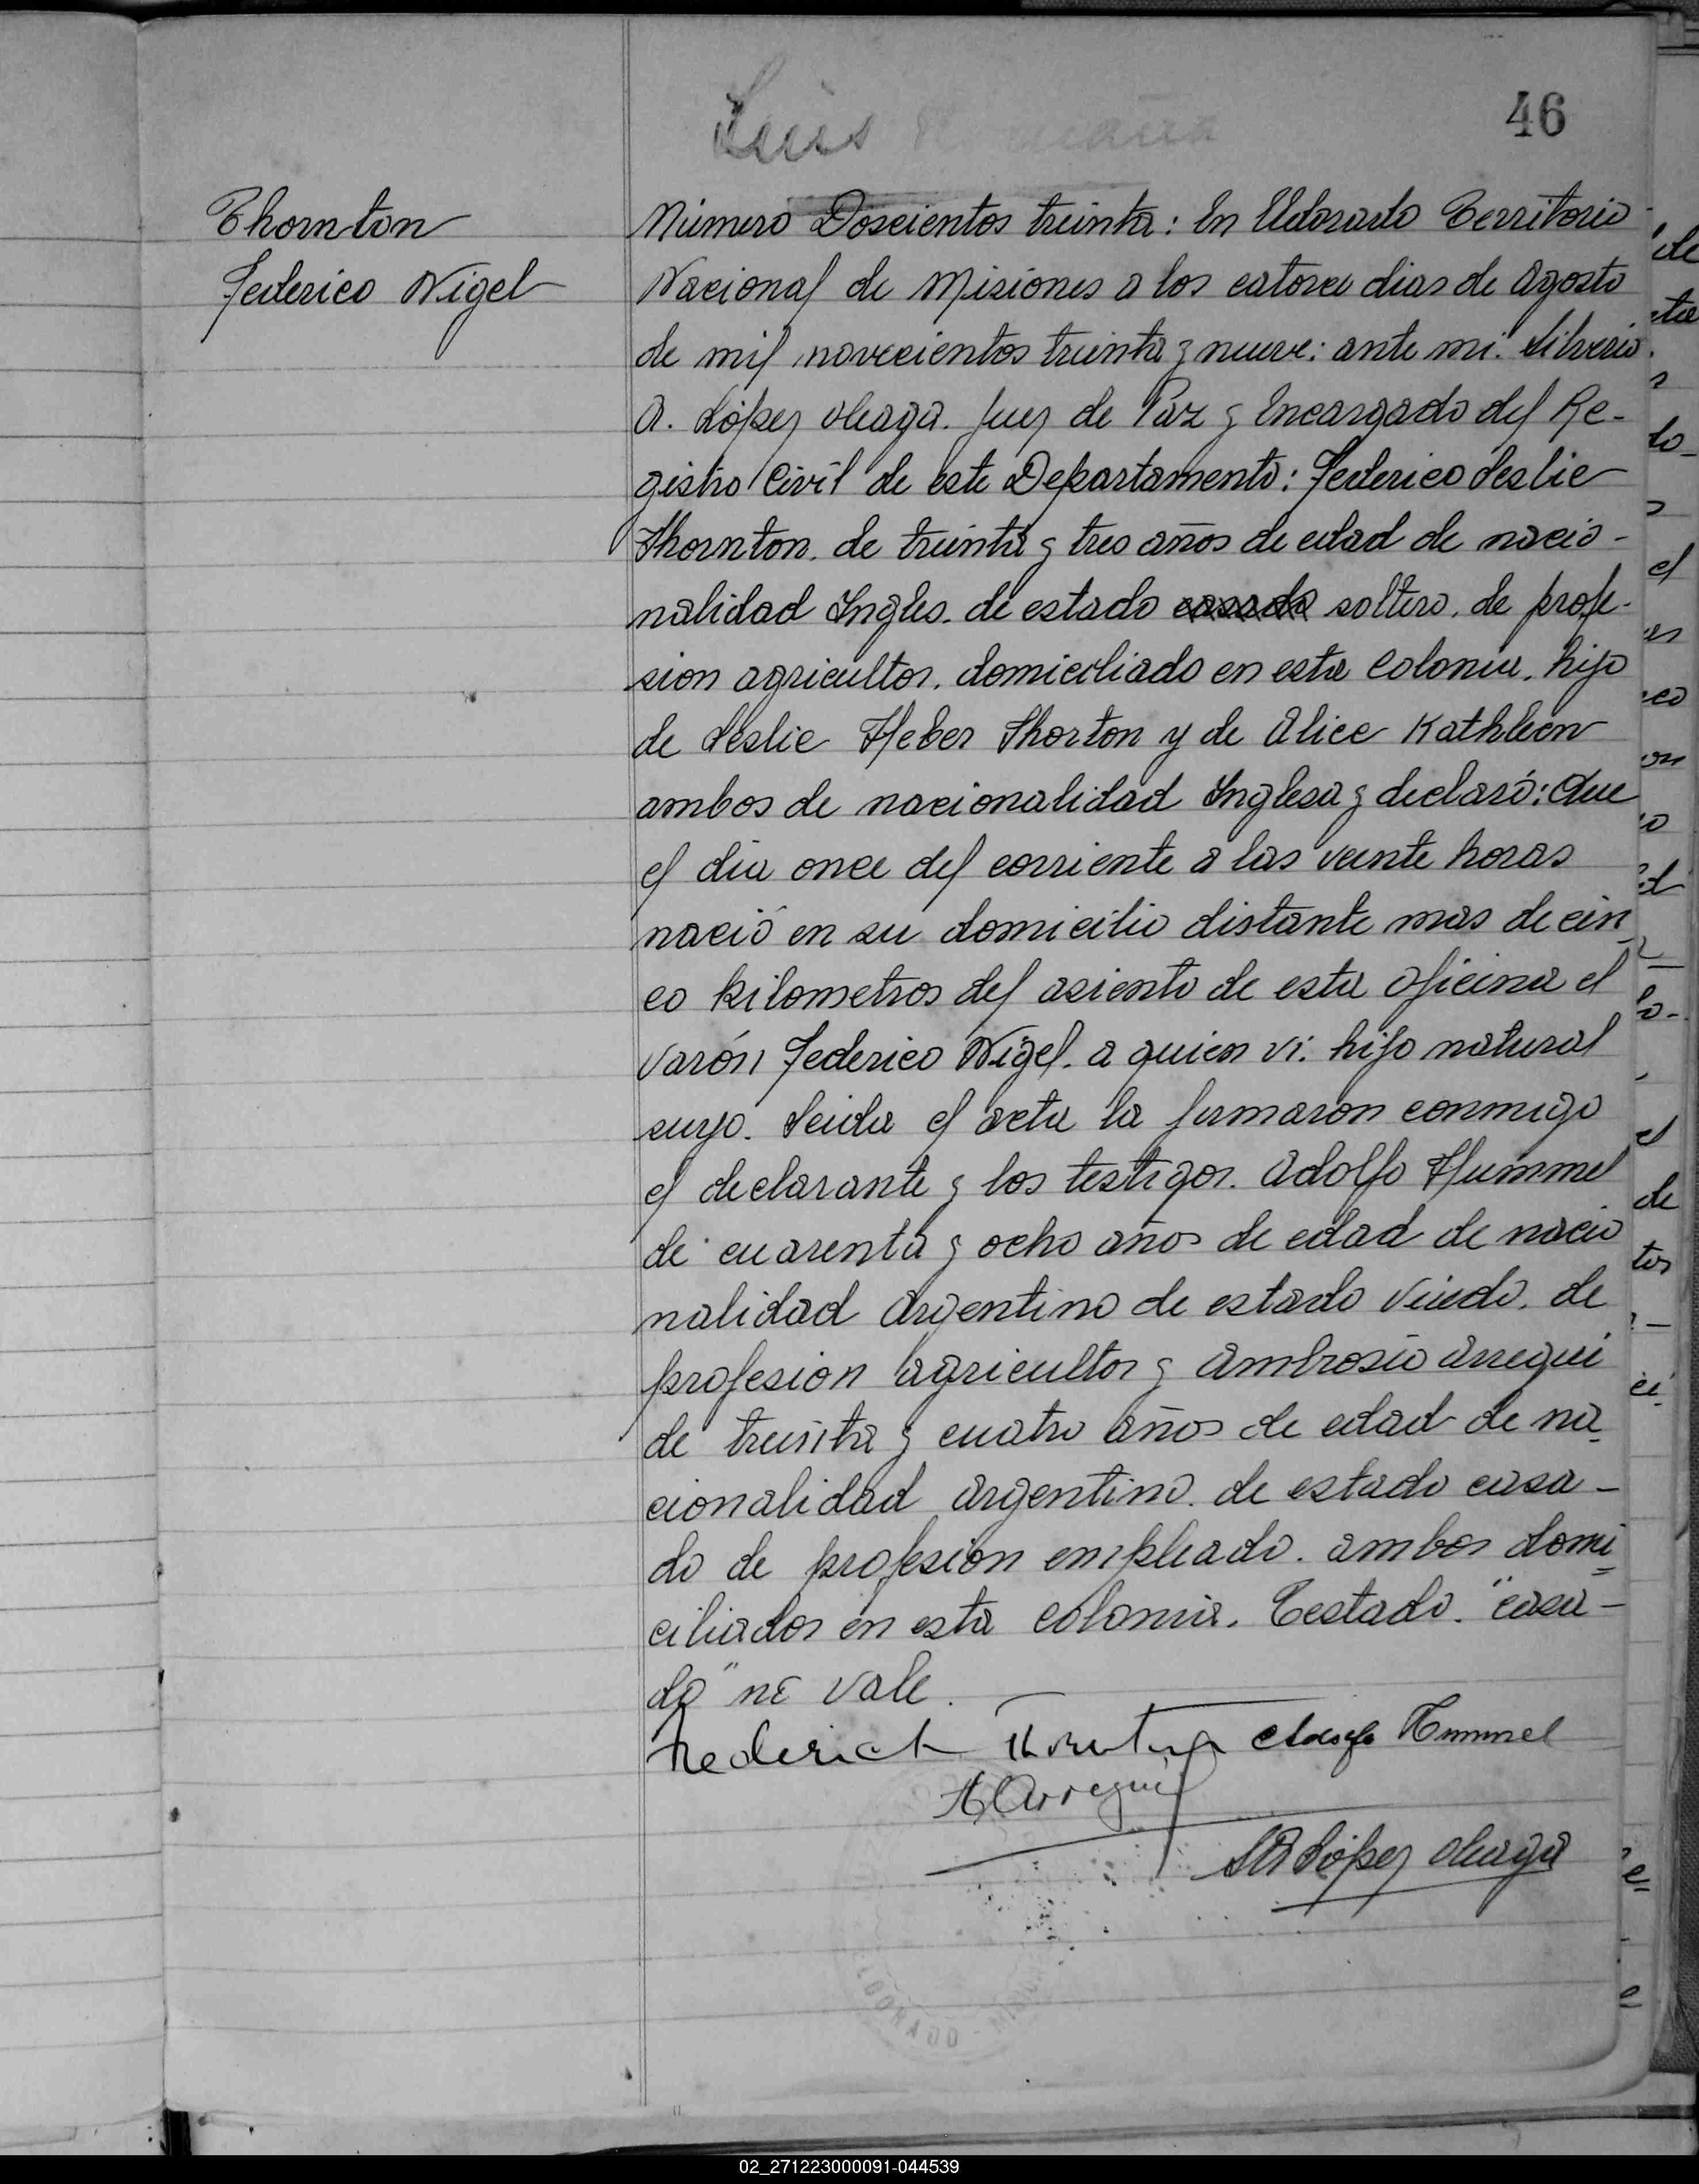 46
Luis
Thornton
Federico Nigel
Número Doscientos treinta: En Eldorado Territorio
Nacional de Misiones a los catorce dias de Agosto
de mil novecientos treinta y nueve: ante mi. Silverio
A. López Oleaga. Juez de Paz y Encargado del Re-
gistro Civil de este Departamento: Federico Leslie
Thornton. de treinta y tres años de edad de nacio-
nalidad Ingles. de estado casado soltero. de profe-
sion agricultor. domiciliado en esta Colonia. hijo
de Leslie Heber Thorton y de Alice Kathleen
ambos de nacionalidad Inglesa y declaró: Que
el dia once del corriente a las veinte horas
nació en su domicilio distante mas de cin
co kilometros del asiento de esta oficina el
varón Federico Nigel. a quien vi. hijo natural
suyo. Leida el acta la firmaron conmigo
el declarante y los testigos. Adolfo Hummel
de cuarenta y ocho años de edad de nacio
nalidad Argentino de estado viudo. de
profesion agricultor y Ambrosio Arregui
de treinta y cuatro años de edad de na
cionalidad argentino. de estado casa-
do de profesión empleado. ambos domi
ciliados en esta colonia. Testado. "casa-
do" no vale.
Frederick Thornton Adolfo Hummel
A Arregui
SA López Oleaga
02_271223000091-044539